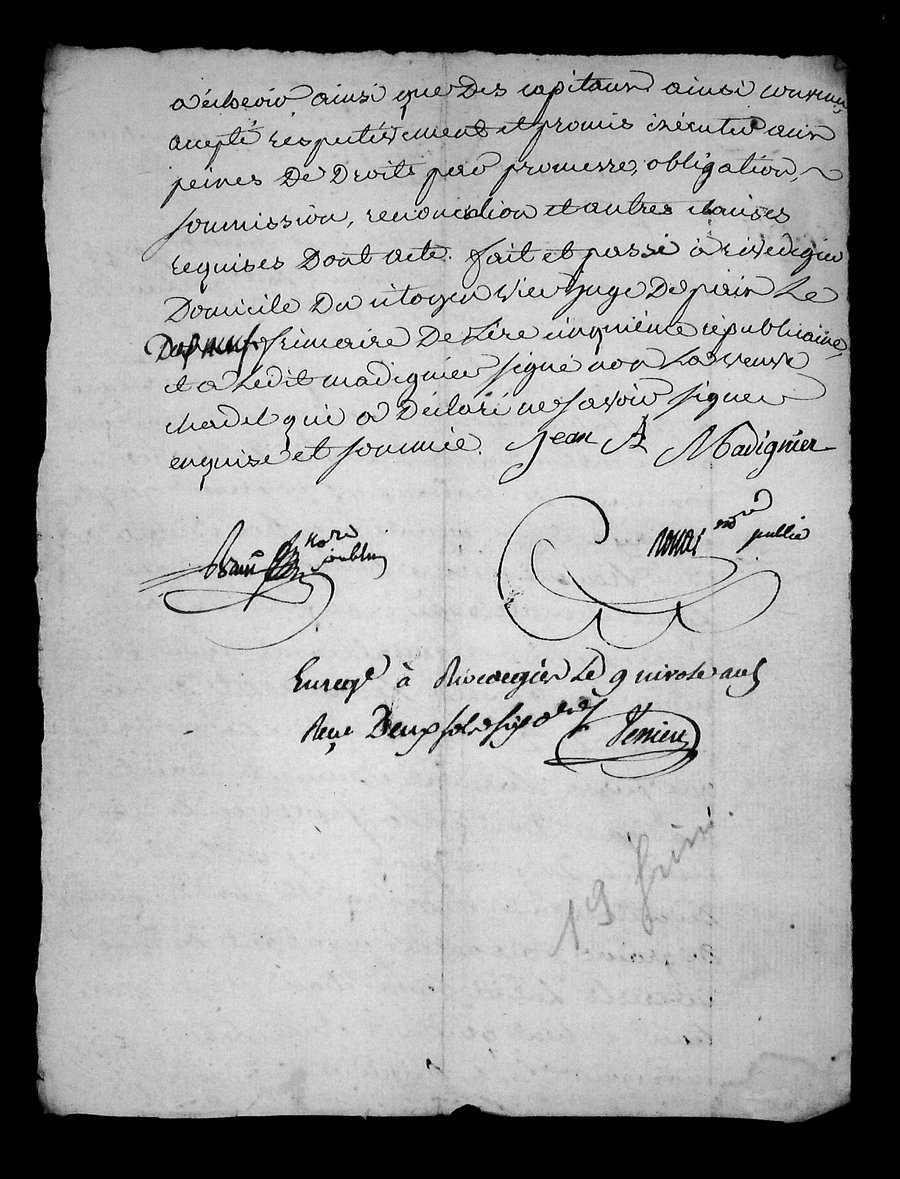 a écheoir ainsi que des capitaux ainsi convenu,
accepté respectivement et promis exécuter aux
peines de Droits par promesse, obligation,
soumission, renonciation et autres clauses
requises Dont acte. fait et passé à rivedegier
Domicile du citoyen juge de paix Le
Dixneuf frimaire de L'ère cinquième républicaine,
et a Ledit madignier signé non La veuve
chadel qui a Déclaré ne savoir signer
enquise et sommée. Jean A Madignier
nore public
nore public
Enregé à Rivedegier Le 9 nivose an 5
Reçu Deux
19 frim.